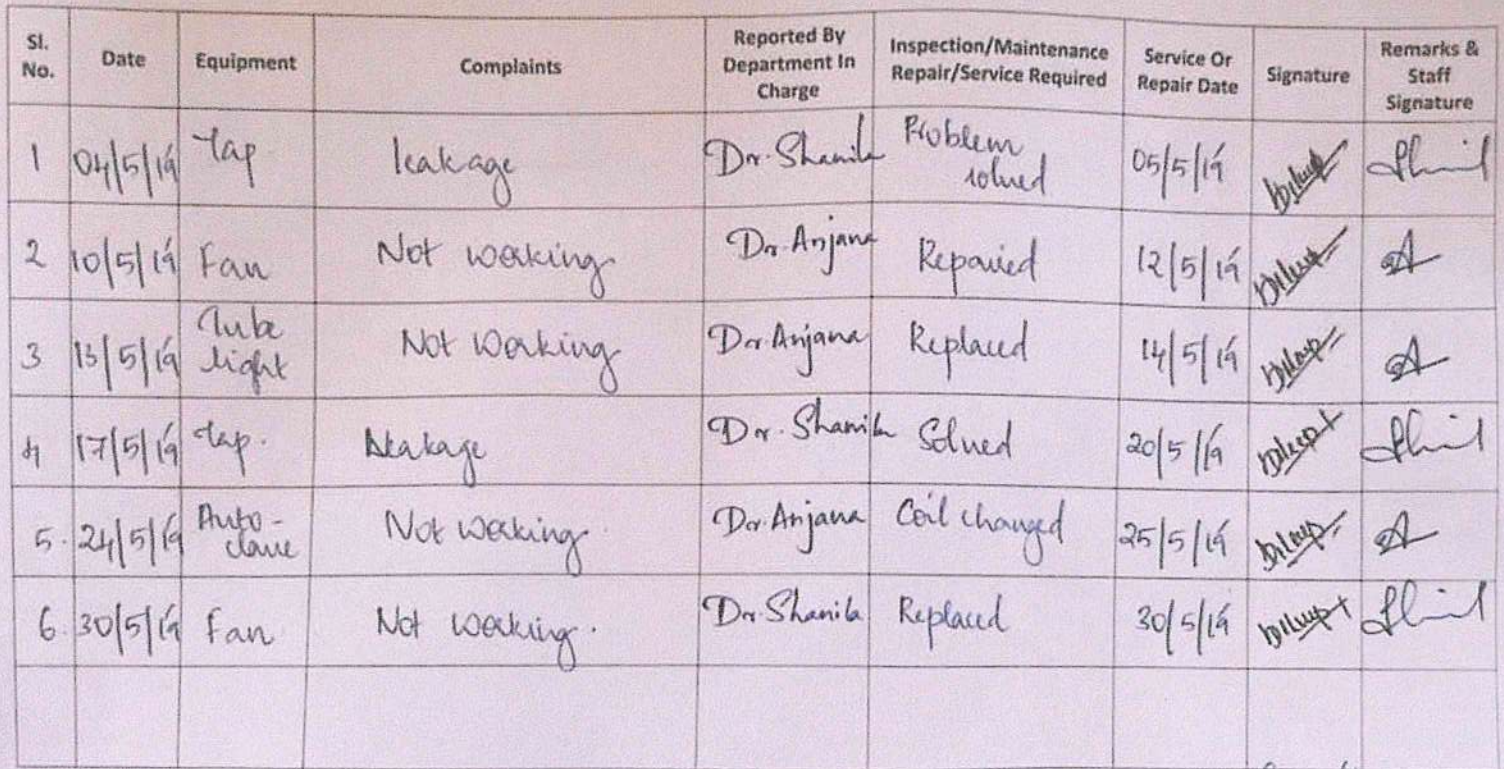 Sl. No. Date Equipment Complaints Reported By Department In Charge Inspection/Maintenance Repair/Service Required Service Or Repair Date Signature Remarks & Staff Signature
1 04/5/19 Tap. leakage Dr. Shanila Problem solved 05/5/19 Dileep
2 10/5/19 Fan Not working Dr. Anjana Repaired 12/5/19 Dileep A
3 13/5/19 Tube light Not working Dr. Anjana Replaced 14/5/19 Dileep A
4 17/5/19 Tap. Leakage Dr. Shanila Solved 20/5/19 Dileep
5. 24/5/19 Auto-clave Not working. Dr. Anjana Coil changed 25/5/19 Dileep A
6. 30/5/19 Fan Not working. Dr. Shanila Replaced 30/5/19 Dileep